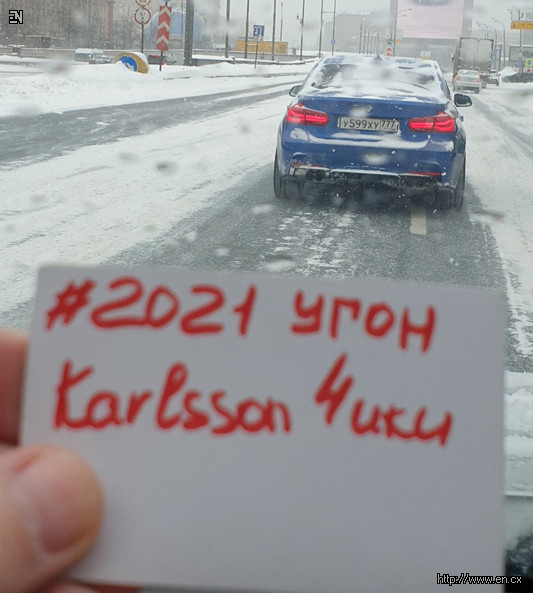 EN
У599ХУ 777
#2021 угон
Karlsson 4ики
http://www.en.cx